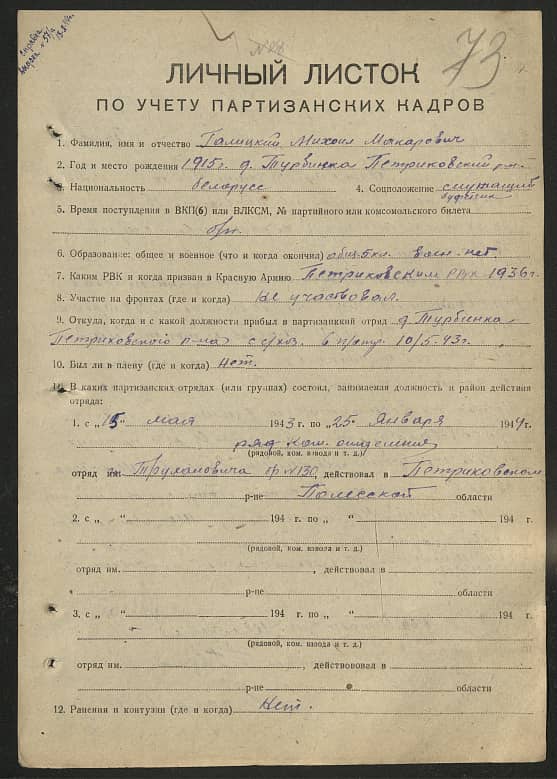 73
ЛИЧНЫЙ ЛИСТОК
ПО УЧЕТУ ПАРТИЗАНСКИХ КАДРОВ
1. Фамилия, имя и отчество Галицкий Михаил Макарович
2. Год и место рождения 1915 г. д. Турбинка Петриковский р-н.
3. Национальность белорусс 4. Соцположение служащий
5. Время поступления в ВКП(б) или ВЛКСМ, № партийного или комсомольского билета
б/п.
6. Образование: общее и военное (что и когда окончил) общ. 5 кл. воен. нет.
7. Каким РВК и когда призван в Красную Армию Петриковским РВК 1936 г.
8. Участие на фронтах (где и когда) не участвовал.
9. Откуда, когда и с какой должности прибыл в партизанкий отряд д. Турбинка
Петриковского р-на с с/хоз. в п/отр. 10/5.43 г.
10. Был ли в плену (где и когда) Нет.
11. В каких партизанских отрядах (или группах) состоял, занимаемая должность и район действия
отряда:
1. с „ 15 “ мая 1943 г. по „ 25 “ Января 1944 г.
ряд. ком. отделения
(рядовой, ком. взвода и т. д.)
отряд им. Трухановича бр № 130, действовал в Петриковском
р-не Полесской области
2. с „ “ 194 г. по „ “ 194 г.
(рядовой, ком. взвода и т. д.)
отряд им. , действовал в
р-не области
3. с „ “ 194 г. по „ “ 194 г.
(рядовой, ком. взвода и т. д.)
отряд им. , действововал в
р-не области
12. Ранения и контузии (где и когда) Нет.